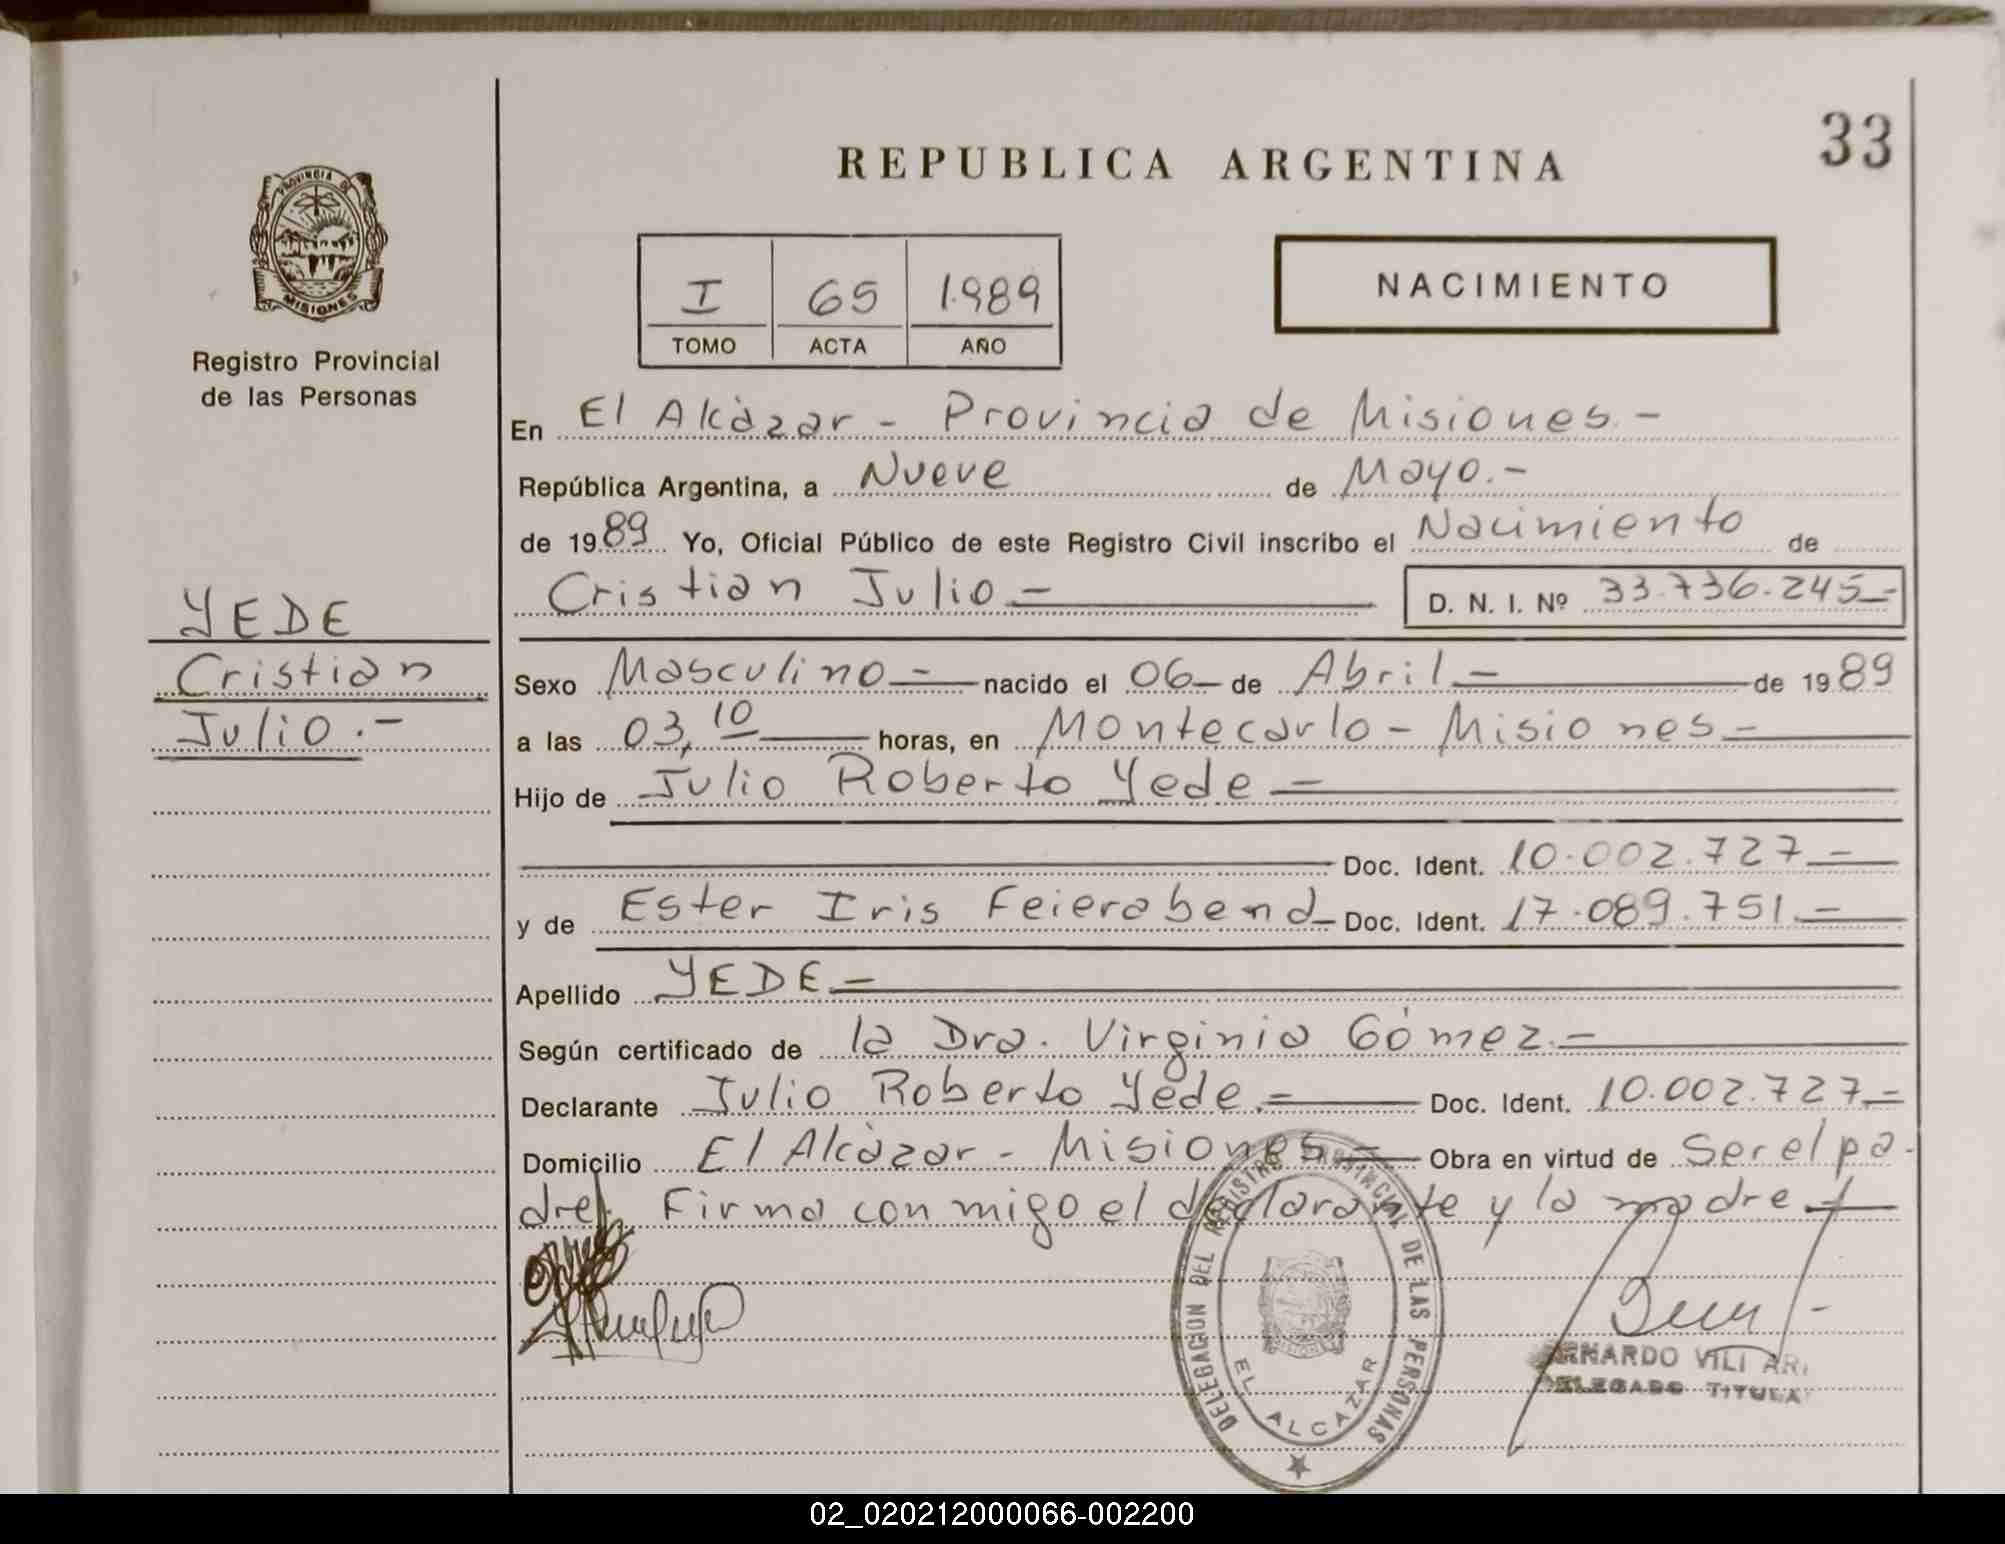 33
REPUBLICA ARGENTINA
PROVINCIA DE
MISIONES
Registro Provincial
de las Personas
I 65 1.989
TOMO ACTA AÑO
NACIMIENTO
En El Alcàzar - Provincia de Misiones.-
República Argentina, a Nueve de Mayo.-
de 1989 Yo, Oficial Público de este Registro Civil inscribo el Nacimiento de
Cristian Julio — D. N. I. Nº 33.736.245-
YEDE
Cristian
Julio.-
Sexo Masculino — nacido el 06 — de Abril — de 1989
a las 03,10 — horas, en Montecarlo - Misiones —
Hijo de Julio Roberto Yede —
Doc. Ident. 10.002.727 —
y de Ester Iris Feierabend — Doc. Ident. 17.089.751.—
Apellido YEDE —
Según certificado de la Dra. Virginia Gómez.—
Declarante Julio Roberto Yede.— Doc. Ident. 10.002.727.—
Domicilio El Alcàzar - Misiones — Obra en virtud de Ser el pa-
dre. Firma conmigo el declarante y la madre —
DELEGACION DEL REGISTRO PROVINCIAL DE LAS PERSONAS
EL ALCAZAR
DELEGADO TITULA
02_020212000066-002200